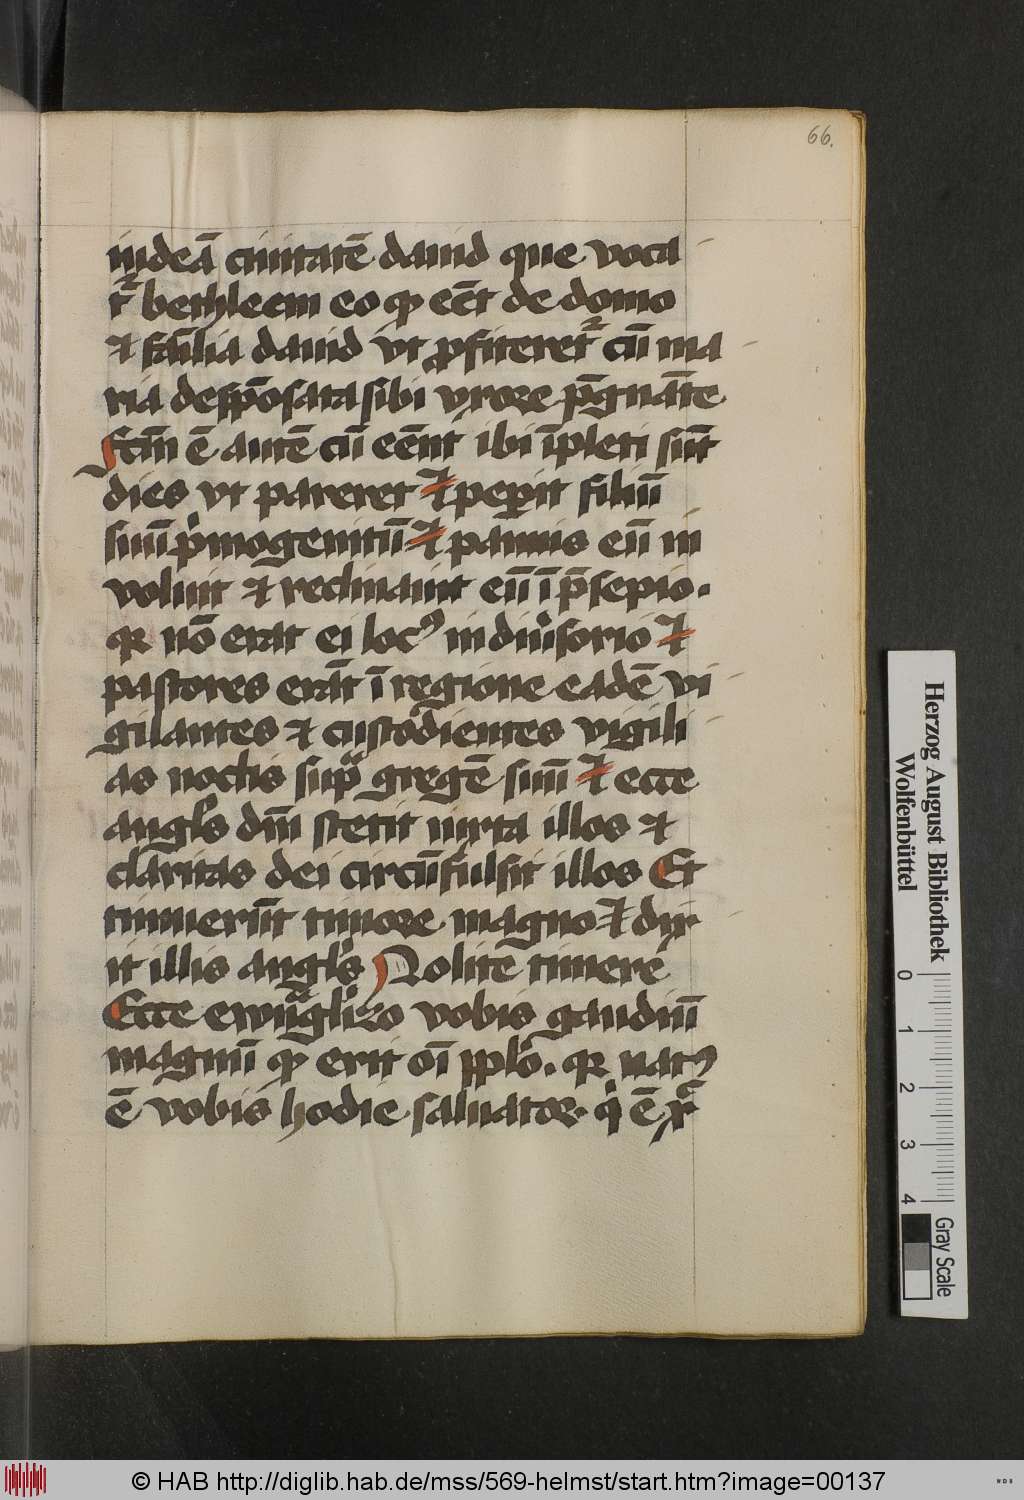 66.
iudeā ciuitatē dauid que voca
tᷣ bethleem eo ꝙ eēt de domo
⁊ fāilia dauid vt ꝓfiteretᷣ cū ma
ria despōsata sibi vxore p̄gnāte
Fctm̄ ē autē cū eēnt ibi īpleti sūt
dies vt pareret ⁊ peꝑit filiū
suū pͥmogenitū ⁊ pannis eū in
voluit ⁊ reclinauit eū ī p̄sepio.
qꝛ nō erat ei locꝰ in diuͥsorio ⁊
pastores erāt ī regione eadē vi
gilantes ⁊ custodientes vigili
as noctis supᷓ gregē suū ⁊ ecce
angl̓s dm̄ stetit iuxta illos ⁊
claritas dei circūfulsit illos Et
timuerūt timore magno ⁊ dix
it illis angl̓s Nolite timere
Ecce ewᷓngliͥzo vobis gaudiū
magnū ꝙ erit oī ppl̓o. qꝛ natꝰ
ē vobis hodie saluator. qͥ ē xᷓ
Herzog August Bibliothek
Wolfenbüttel
0 1 2 3 4
Gray Scale
© HAB http://diglib.hab.de/mss/569-helmst/start.htm?image=00137